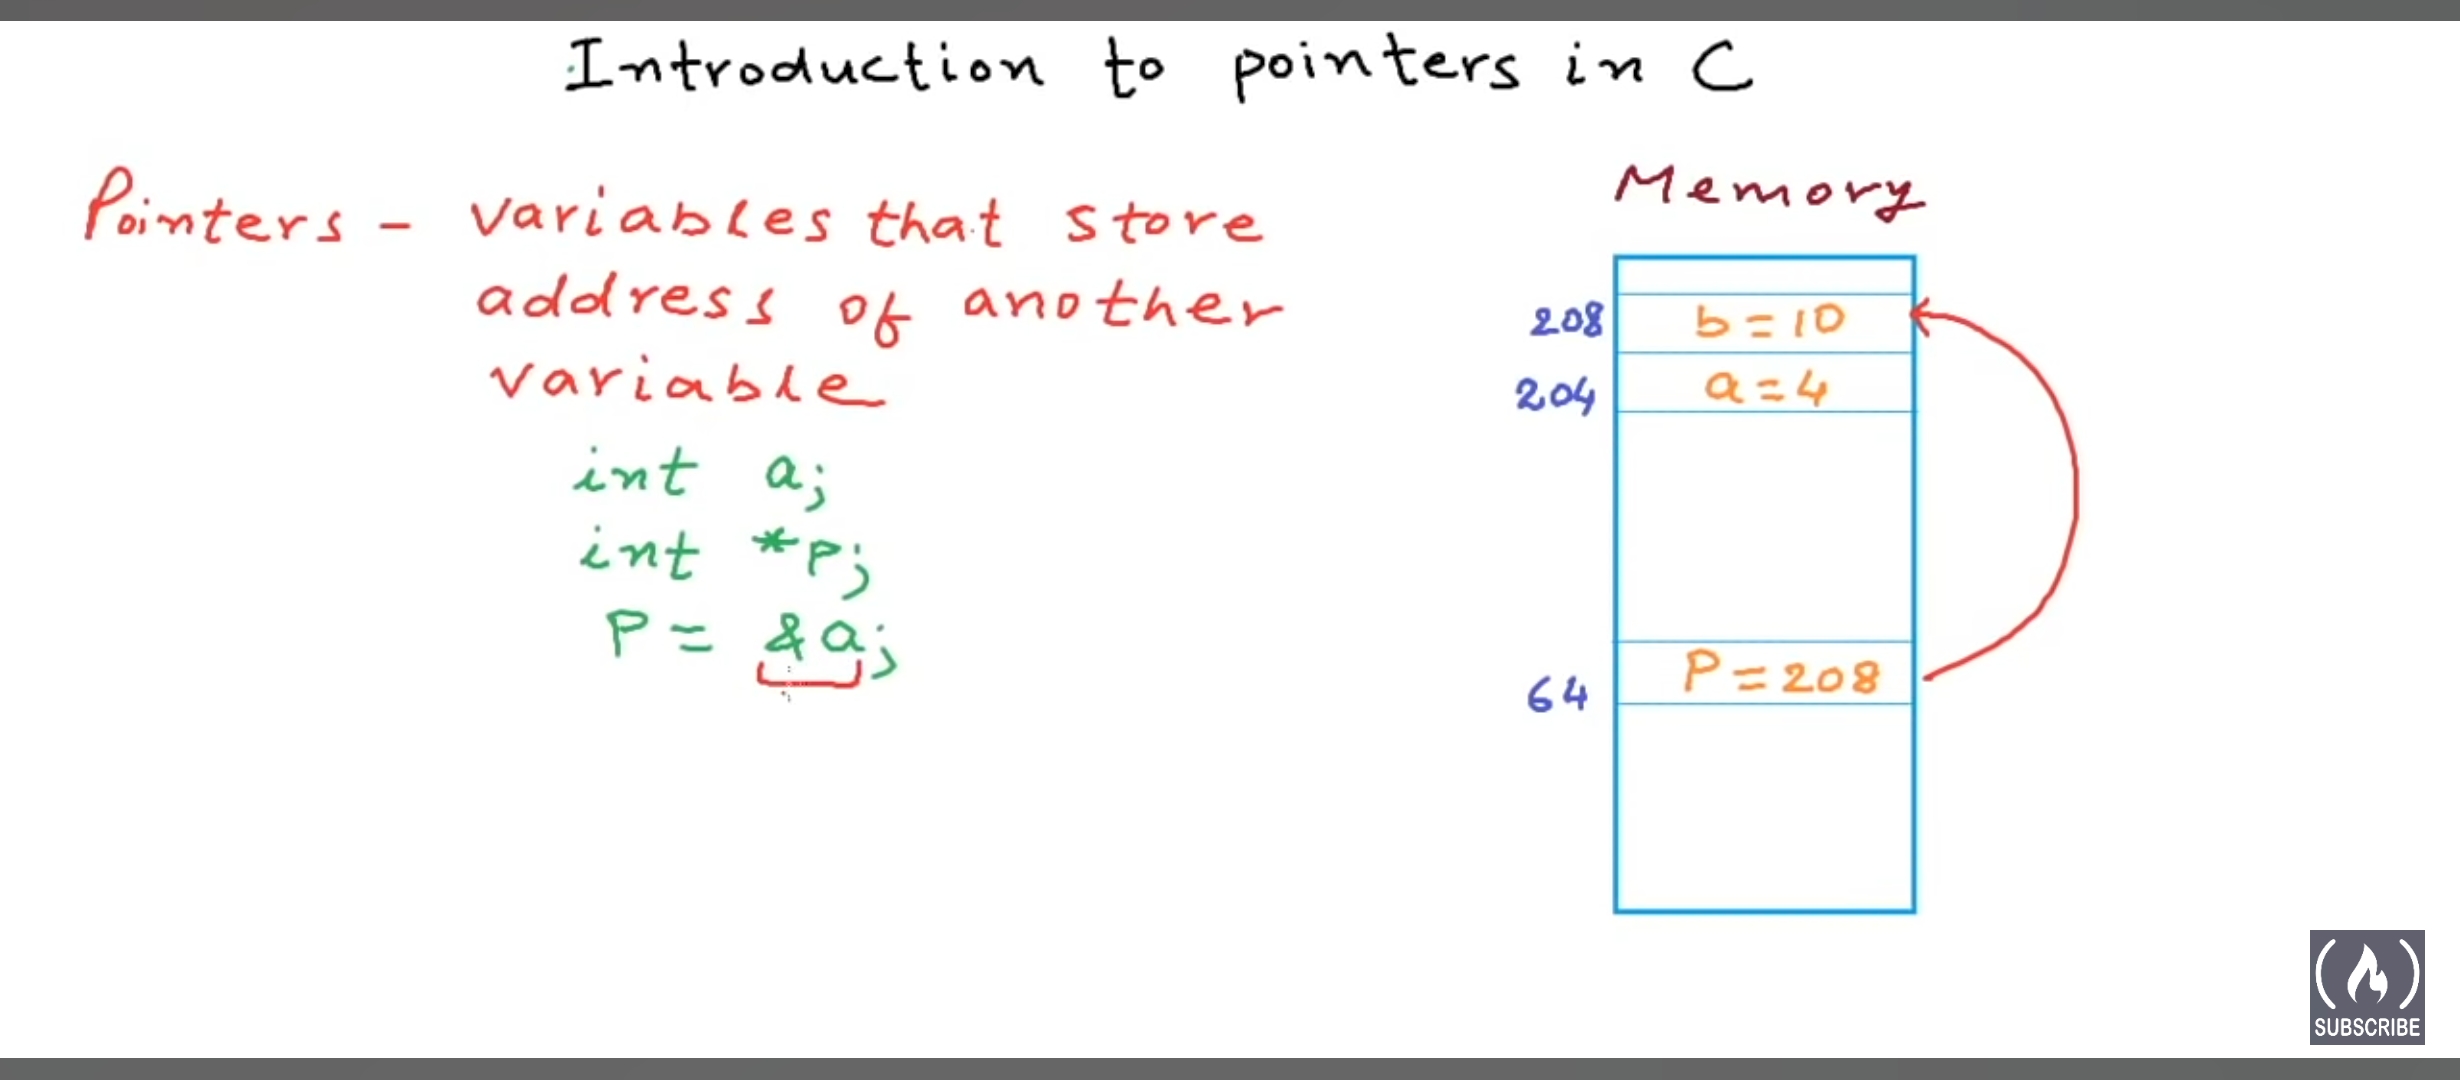 Introduction to pointers in C
Pointers - variables that store
address of another
variable
int a;
int *p;
P = &a;
Memory
208 b = 10
204 a = 4
64 P = 208
SUBSCRIBE